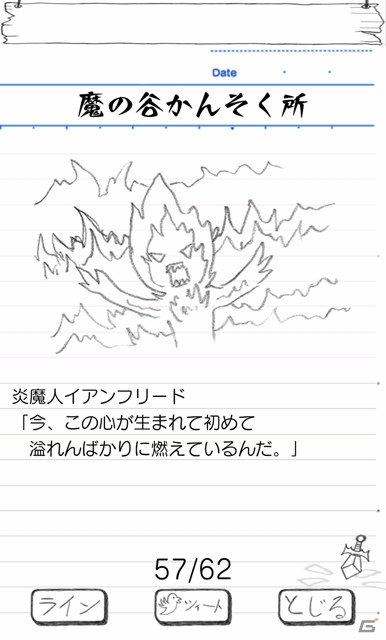 Date
魔の谷かんそく所
炎魔人イアンフリード
「今、この心が生まれて初めて
溢れんばかりに燃えているんだ。」
57/62
ライン
ツイート
とじる
G